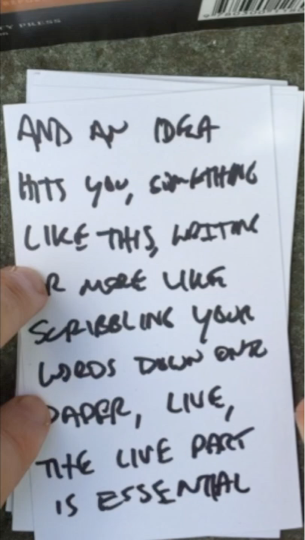 Y PRESS
AND AN IDEA
HITS YOU, SOMETHING
LIKE THIS, WRITING
R MORE LIKE
SCRIBBLING YOUR
WORDS DOWN ONTO
PAPER, LIVE,
THE LIVE PART
IS ESSENTIAL